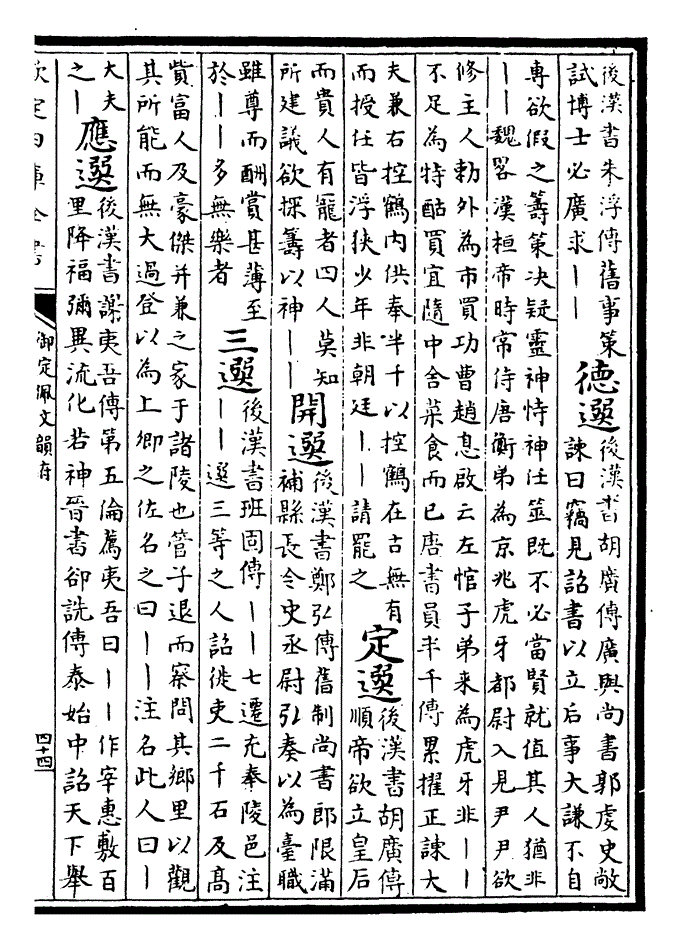 後漢書朱浮傳舊事策
試博士必廣求｜｜
德選
後漢書胡廣傳廣與尚書郭虔史敞
諫曰竊見詔書以立后事大謙不自
專欲假之籌策决疑靈神恃神任筮既不必當賢就值其人猶非
｜｜魏畧漢桓帝時常侍唐衡弟為京兆虎牙都尉入見尹尹欲
修主人勑外為市買功曹趙息啟云左悺子弟来為虎牙非｜｜
不足為特酤買宜隨中舍菜食而已唐書員半千傳累擢正諫大
夫兼右控鶴内供奉半千以控鶴在古無有
而授任皆浮狹少年非朝廷｜｜請罷之
定選
後漢書胡廣傳
順帝欲立皇后
而貴人有寵者四人莫知
所建議欲探籌以神｜｜
開選
後漢書鄭弘傳舊制尚書郎限滿
補縣長令史丞尉弘奏以為臺職
雖尊而酬賞甚薄至
於｜｜多無樂者
三選
後漢書班固傳｜｜七遷充奉陵邑注
｜｜選三等之人詔徙吏二千石及髙
訾富人及豪傑并兼之家于諸陵也管子退而察問其鄉里以觀
其所能而無大過登以為上卿之佐名之曰｜｜注名此人曰｜
大夫
之｜
應選
後漢書謝夷吾傳第五倫薦夷吾曰｜｜作宰惠敷百
里降福彌異流化若神晉書郤詵傳泰始中詔天下舉
欽定四庫全書
御定佩文韻府
四十四